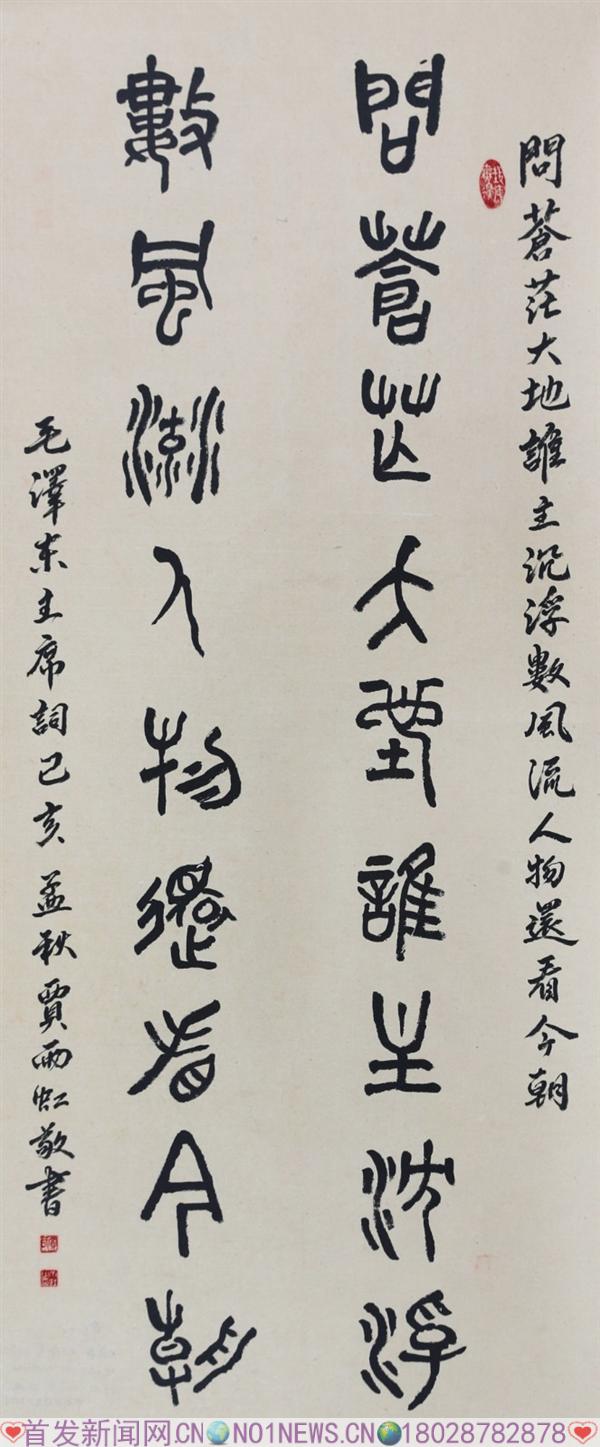 問蒼茫大地誰主沉浮數風流人物還看今朝
問蒼茫大地誰主沈浮
數風流人物還看今朝
毛澤東主席詞己亥孟秋賈雨虹敬書
首发新闻网.CN NO1NEWS.CN 18028782878